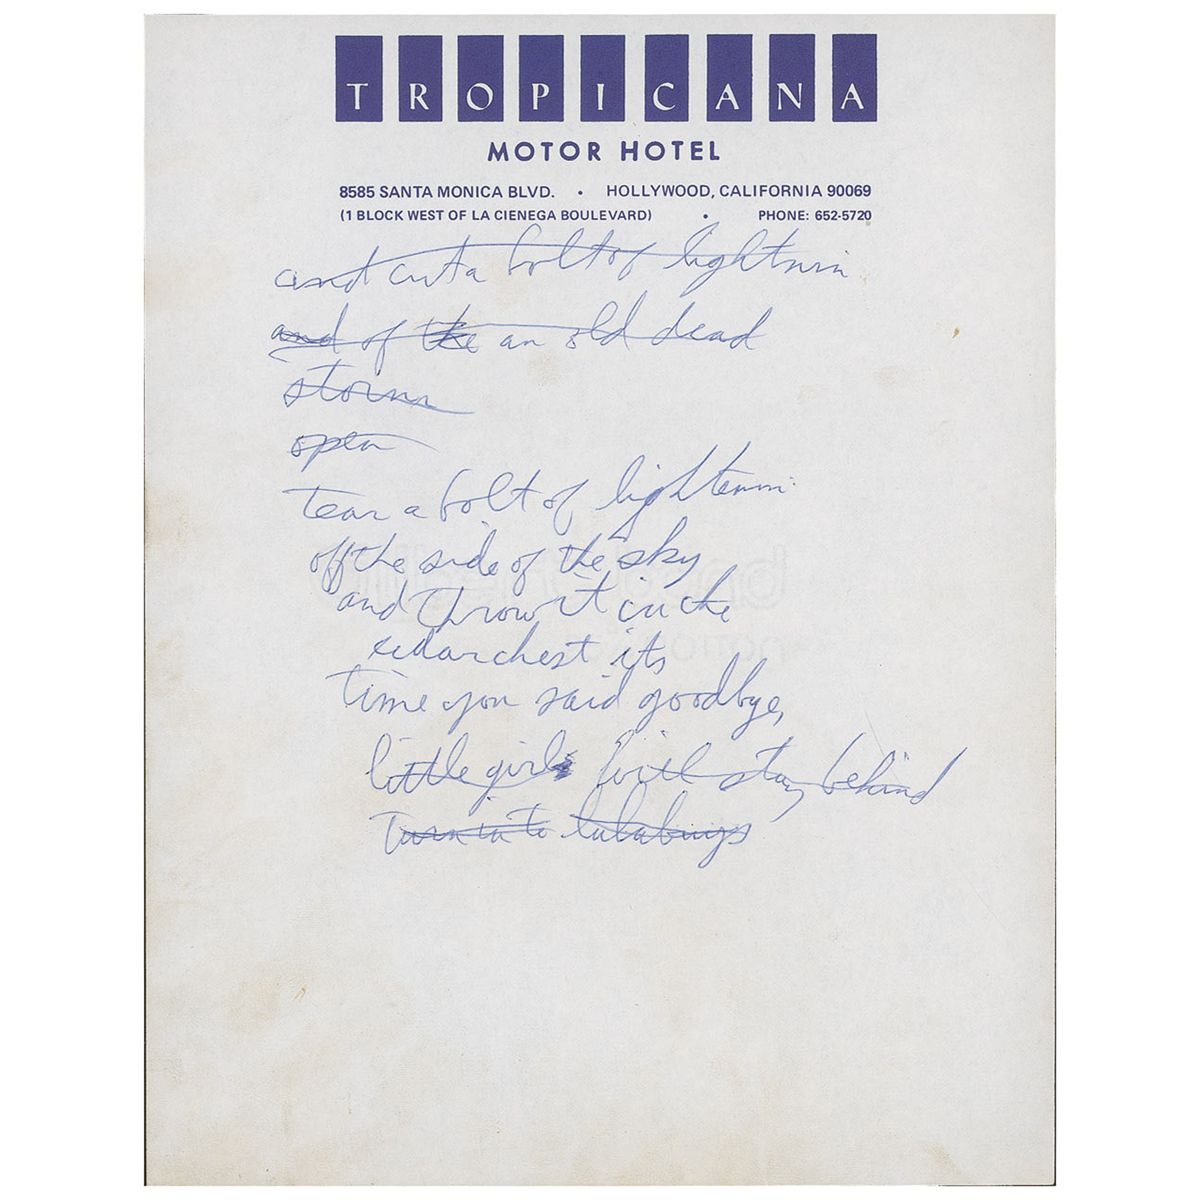 TROPICANA
MOTOR HOTEL
8585 SANTA MONICA BLVD. • HOLLYWOOD, CALIFORNIA 90069
(1 BLOCK WEST OF LA CIENEGA BOULEVARD) • PHONE: 652-5720
and cut a bolt of lightnin
and of the an old dead
storm
open
tear a bolt of lightenin
off the side of the sky
and throw it in the
cedarchest its
time you said goodbye,
little girls will stay behind
Turn in to lulabuys